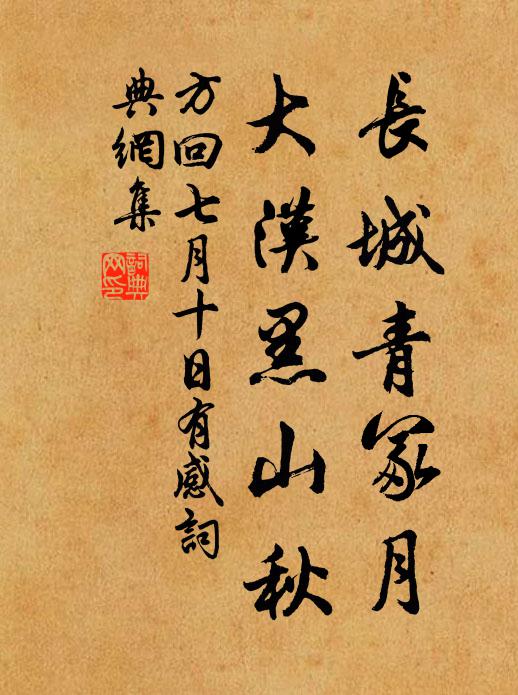 長城青冢月
大漠黑山秋
方回七月十日有感詞
典網集
詞典網印